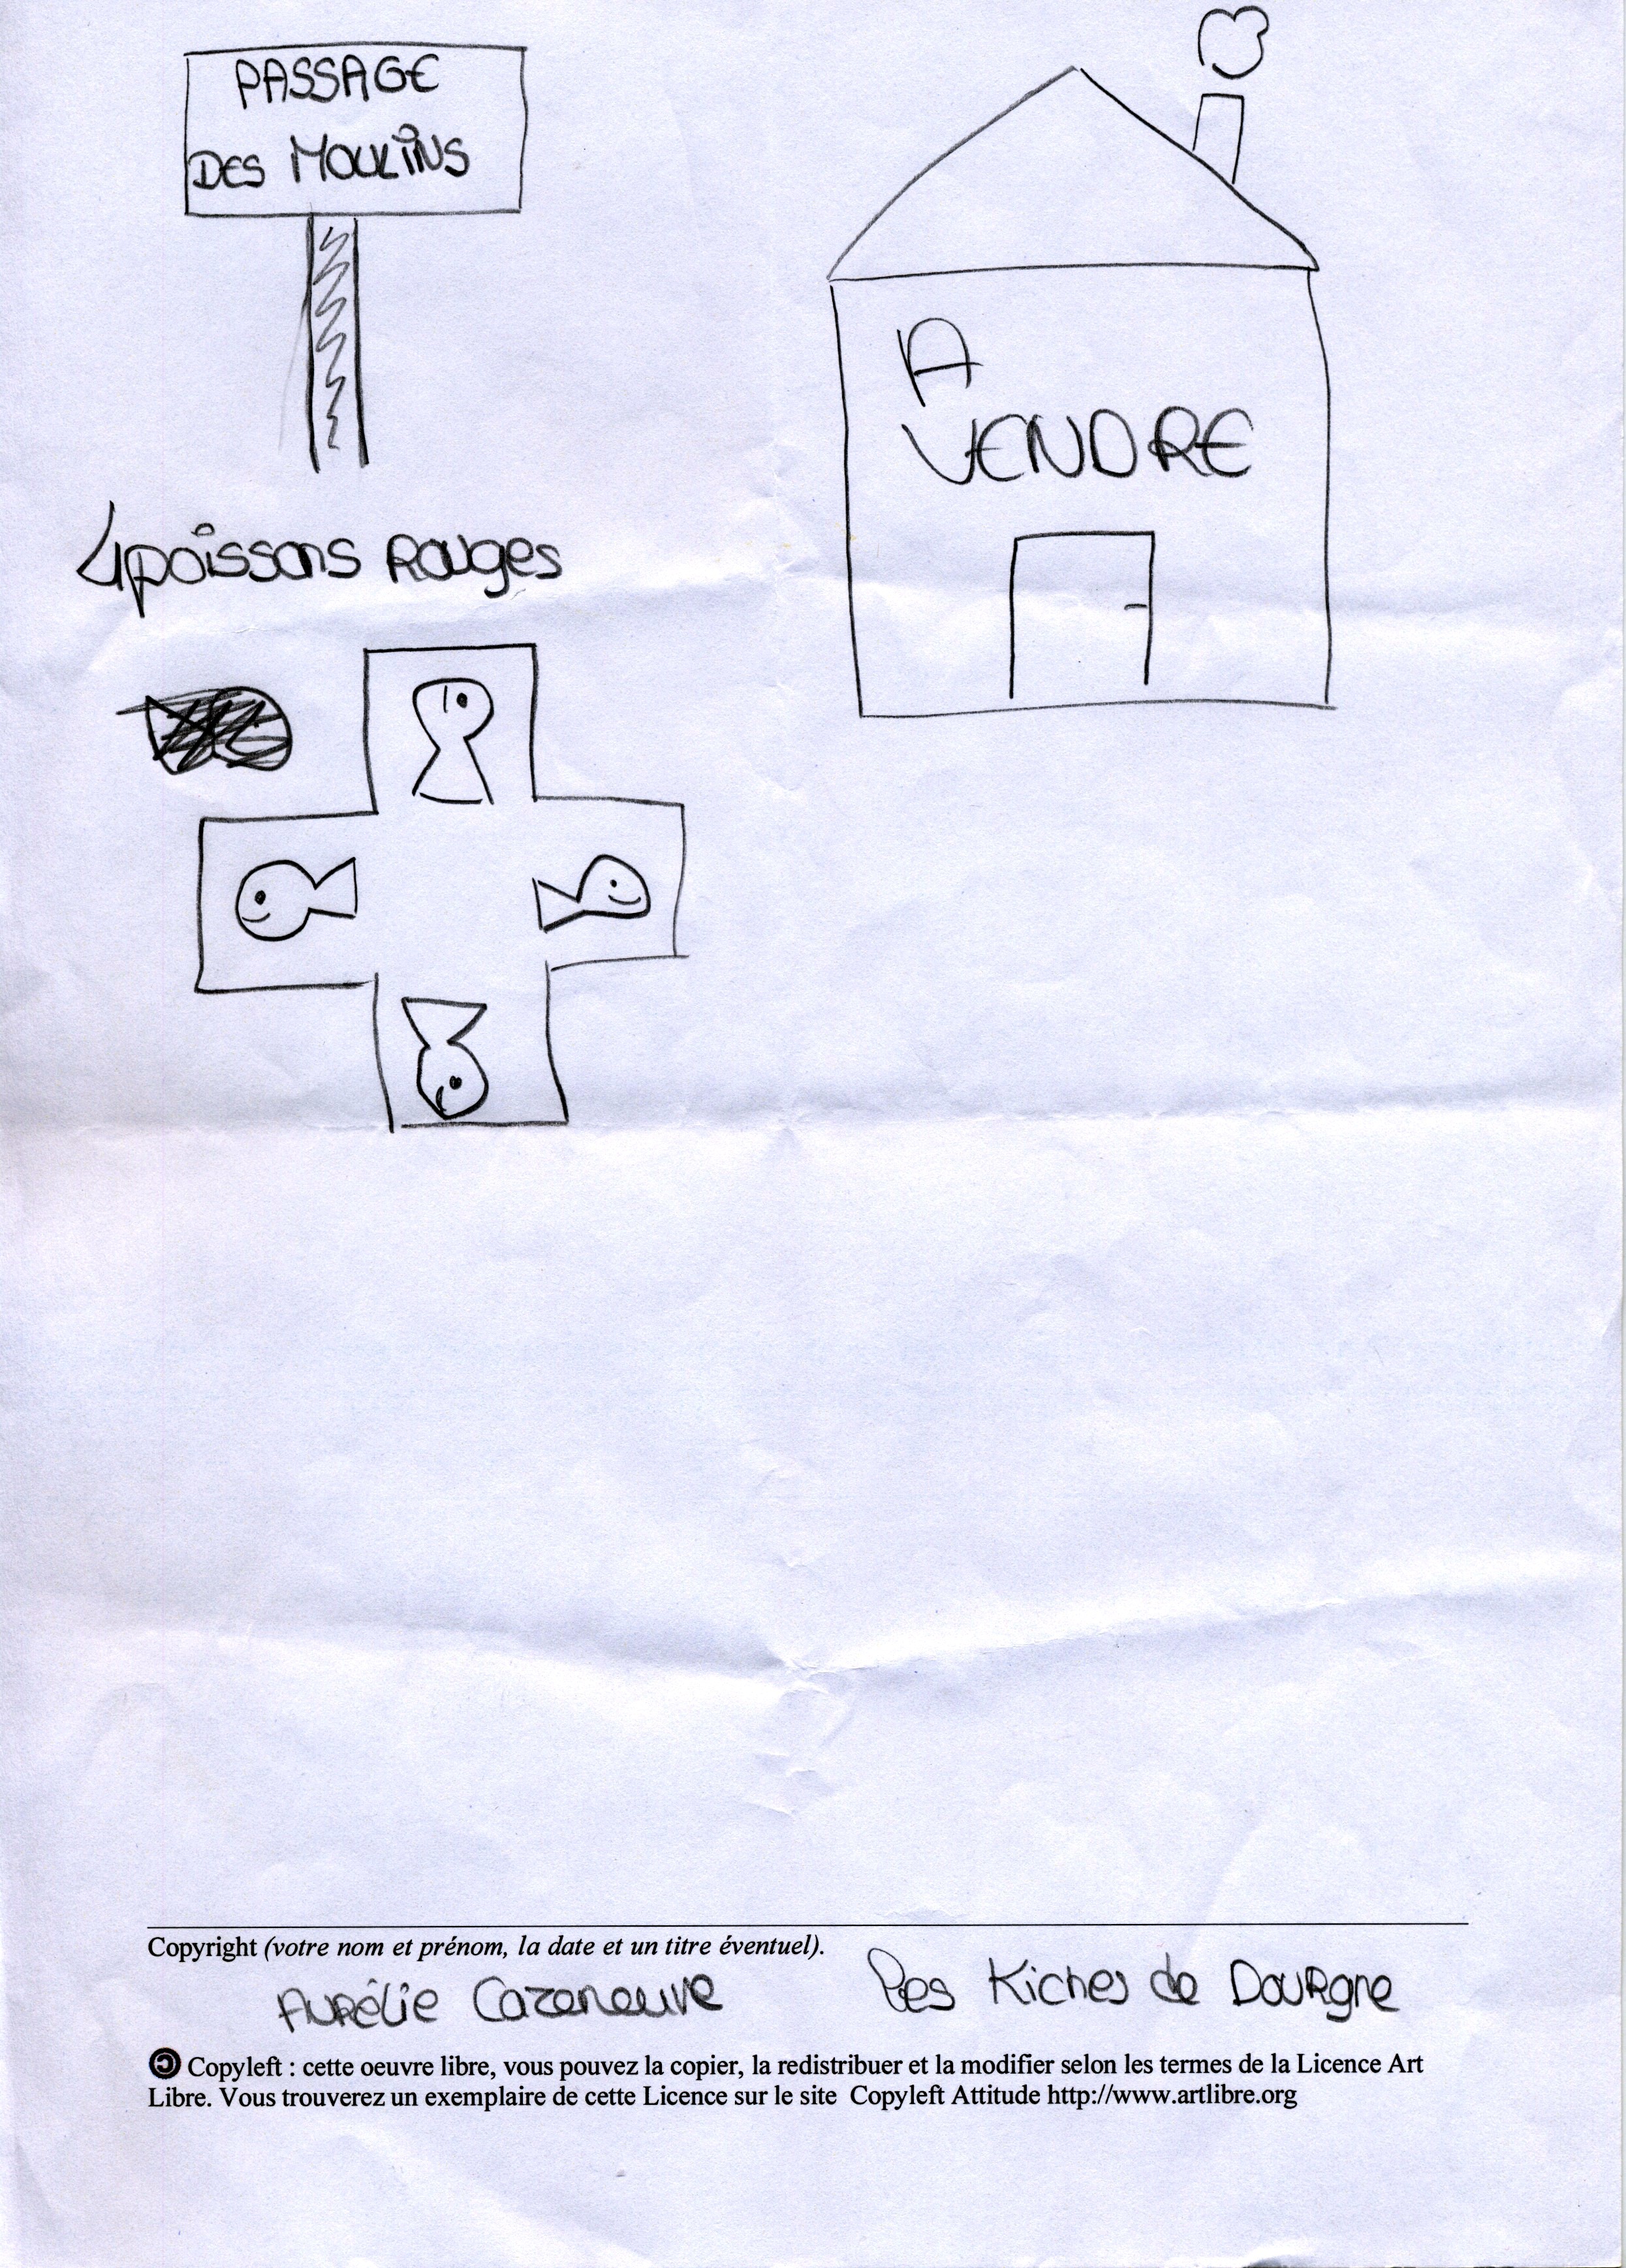 PASSAGE
DES MOULINS
A
VENDRE
4 poissons Rouges
Copyright (votre nom et prénom, la date et un titre éventuel).
Aurélie Cazeneuve
Les Kiches de Dourgne
Copyleft : cette oeuvre libre, vous pouvez la copier, la redistribuer et la modifier selon les termes de la Licence Art
Libre. Vous trouverez un exemplaire de cette Licence sur le site Copyleft Attitude http://www.artlibre.org